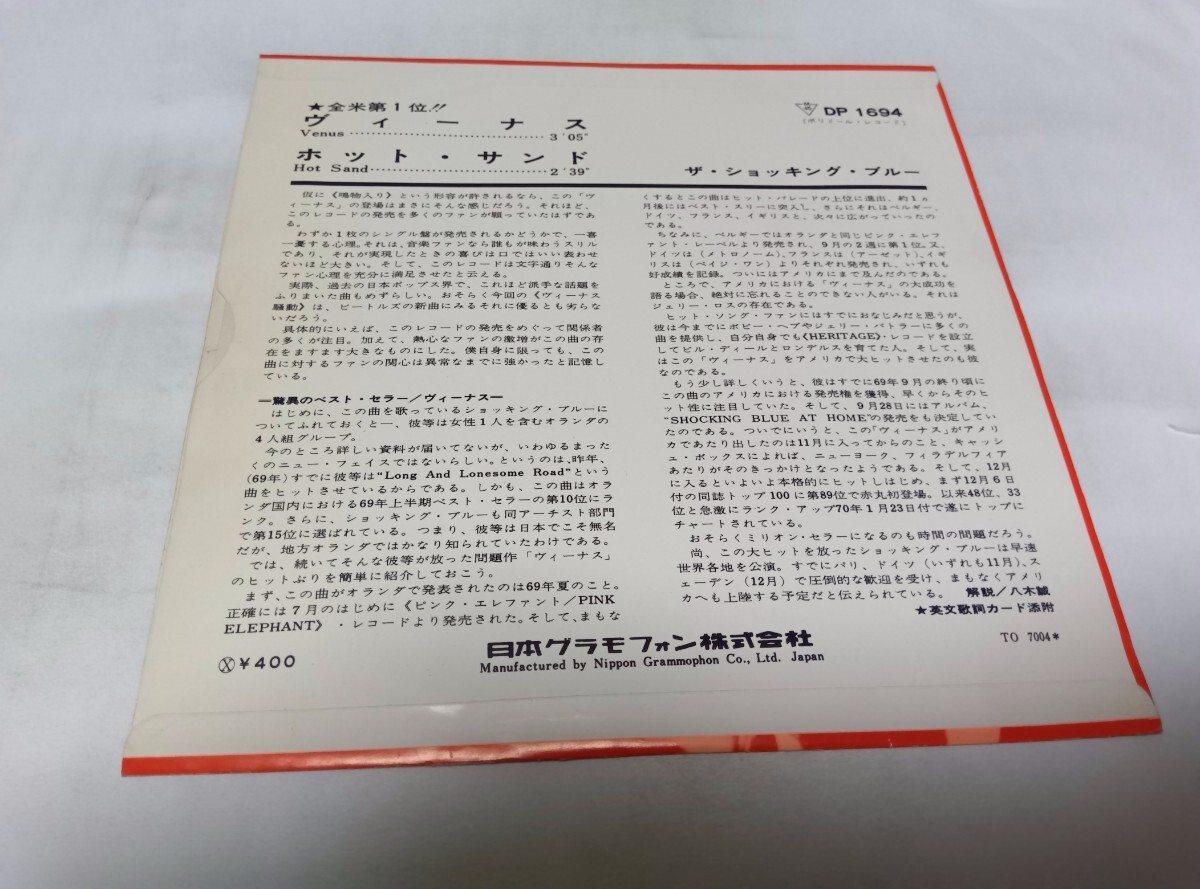 ★全米第1位!!
ヴィーナス
Venus 3'05"
ホット・サンド
Hot Sand 2'39"
DP 1694
(ポリドール・レコード)
ザ・ショッキング・ブルー
仮に《鳴物入り》という形容が許されるなら、この「ヴ
ィーナス」の登場はまさにそんな感じだろう。それほど、
このレコードの発売を多くのファンが願っていたはずであ
る。
わずか1枚のシングル盤が発売されるかどうかで、一喜
一憂する心理。それは、音楽ファンなら誰もが味わうスリル
であり、それが実現したときの喜びは口ではいい表わせ
ないほど大きい。そして、このレコードは文字通りそんな
ファン心理を充分に満足させたと云える。
実際、過去の日本ポップス界で、これほど派手な話題を
ふりまいた曲もめずらしい。おそらく今回の《ヴィーナス
騒動》は、ビートルズの新曲にみるそれに優るとも劣らな
いだろう。
具体的にいえば、このレコードの発売をめぐって関係者
の多くが注目。加えて、熱心なファンの激増がこの曲の存
在をますます大きなものにした。僕自身に限っても、この
曲に対するファンの関心は異常なまでに強かったと記憶し
ている。
―驚異のベスト・セラー/ヴィーナス―
はじめに、この曲を歌っているショッキング・ブルーに
ついてふれておくと―、彼等は女性1人を含むオランダの
4人組グループ。
今のところ詳しい資料が届いてないが、いわゆるまった
くのニュー・フェイスではないらしい。というのは、昨年、
(69年)すでに彼等は"Long And Lonesome Road"という
曲をヒットさせているからである。しかも、この曲はオラ
ンダ国内における69年上半期ベスト・セラーの第10位にラ
ンク。さらに、ショッキング・ブルーも同アーチスト部門
で第15位に選ばれている。つまり、彼等は日本でこそ無名
だが、地方オランダではかなり知られていたわけである。
では、続いてそんな彼等が放った問題作「ヴィーナス」
のヒットぶりを簡単に紹介しておこう。
まず、この曲がオランダで発表されたのは69年夏のこと。
正確には7月のはじめに《ピンク・エレファント/PINK
ELEPHANT》・レコードより発売された。そして、まもな
くするとこの曲はヒット・パレードの上位に進出、約1ヵ
月後にはベスト・スリーに突入し、さらにそれはベルギー、
ドイツ、フランス、イギリスと、次々に広がっていったの
である。
ちなみに、ベルギーではオランダと同じピンク・エレフ
ァント・レーベルより発売され、9月の2週に第1位。又、
ドイツは(メトロノーム)、フランスは(アーゼット)、イギ
リスは(ペイジ・ワン)よりそれぞれ発売され、いずれも
好成績を記録。ついにはアメリカにまで及んだのである。
ところで、アメリカにおける「ヴィーナス」の大成功を
語る場合、絶対に忘れることのできない人がいる。それは
ジェリー・ロスの存在である。
ヒット・ソング・ファンにはすでにおなじみだと思うが、
彼は今までにボビー・ヘブやジェリー・バトラーに多くの
曲を提供し、自分自身でも《HERITAGE》・レコードを設立
してビル・ディールとロンデルスを育てた人。そして、実
はこの「ヴィーナス」をアメリカで大ヒットさせたのも彼
なのである。
もう少し詳しくいうと、彼はすでに69年9月の終り頃に
この曲のアメリカにおける発売権を獲得、早くからそのヒ
ット性に注目していた。そして、9月28日にはアルバム、
"SHOCKING BLUE AT HOME"の発売をも決定してい
たのである。ついでにいうと、この「ヴィーナス」がアメリ
カであたり出したのは11月に入ってからのこと、キャッシ
ュ・ボックスによれば、ニューヨーク、フィラデルフィア
あたりがそのきっかけとなったようである。そして、12月
に入るといよいよ本格的にヒットしはじめ、まず12月6日
付の同誌トップ100に第89位で赤丸初登場。以来48位、33
位と急激にランク・アップ70年1月23日付で遂にトップに
チャートされている。
おそらくミリオン・セラーになるのも時間の問題だろう。
尚、この大ヒットを放ったショッキング・ブルーは早速
世界各地を公演。すでにパリ、ドイツ(いずれも11月)、ス
エーデン(12月)で圧倒的な歓迎を受け、まもなくアメリ
カへも上陸する予定だと伝えられている。 解説/八木誠
★英文歌詞カード添附
日本グラモフォン株式会社
Manufactured by Nippon Grammophon Co., Ltd. Japan
TO 7004*
Ⓧ¥400